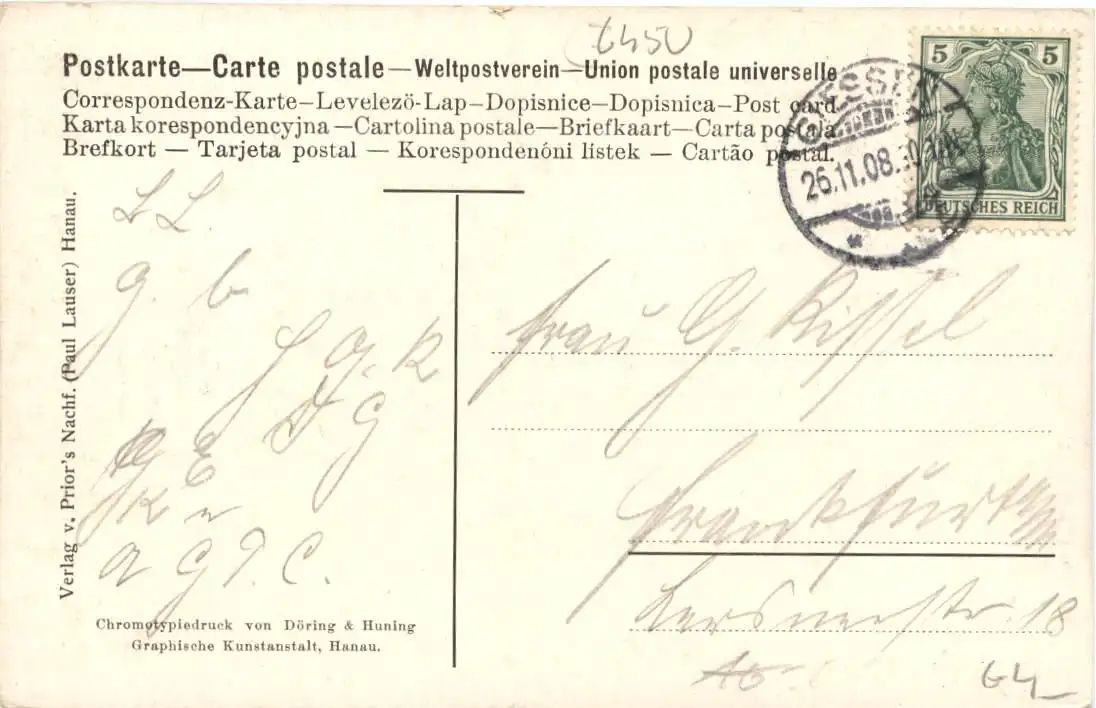 6450
Postkarte—Carte postale—Weltpostverein—Union postale universelle
Correspondenz-Karte—Levelezö-Lap—Dopisnice—Dopisnica—Post card.
Karta korespondencyjna—Cartolina postale—Briefkaart—Carta postala.
Brefkort — Tarjeta postal — Korespondenóni lístek — Cartão postal.
5 5
DEUTSCHES REICH
26.11.08.
Verlag v. Prior's Nachf. (Paul Lauser) Hanau.
L L
g. b
f g. k
D G
E
K
a g c.
Frau G. Kissel
Frankfurt a/M
18
Chromotypiedruck von Döring & Huning
Graphische Kunstanstalt, Hanau.